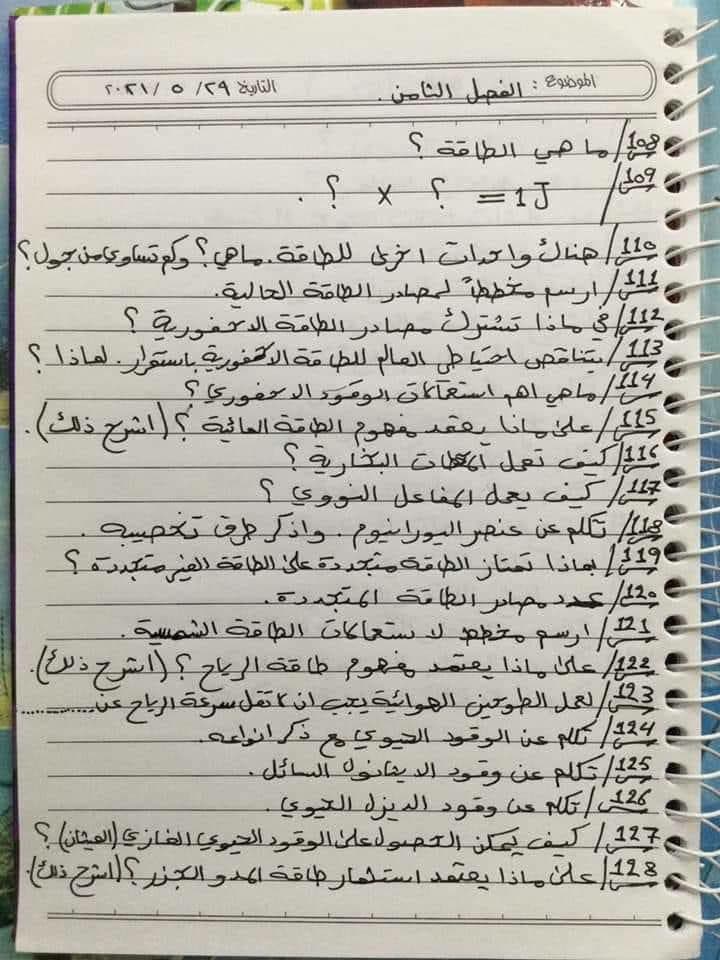 الموضوع : الفصل الثامن . التاريخ ٢٩/ ٥ /٢٠٢١
س108/ ما هي الطاقة ؟
س109/ 1J = ? x ? .
س110/ هناك واحدات اخرى للطاقة . ماهي ؟ وكم تساوي من جول ؟
س111/ ارسم مخططاً لمصادر الطاقة الحالية .
س112/ في ماذا تشترك مصادر الطاقة الاحفورية ؟
س113/ يتناقص احتياطي العالم للطاقة الاحفورية باستقرار . لماذا ؟
س114/ ماهي اهم استعمالات الوقود الاحفوري ؟
س115/ على ماذا يعتمد مفهوم الطاقة المائية ؟ (اشرح ذلك) .
س116/ كيف تعمل المحطات البخارية ؟
س117/ كيف يعمل المفاعل النووي ؟
س118/ تكلم عن عنصر اليورانيوم . واذكر طرق تخصيبه .
س119/ بماذا تمتاز الطاقة متجددة على الطاقة الغير متجددة ؟
س120/ عدد مصادر الطاقة المتجددة .
س121/ ارسم مخطط لاستعمالات الطاقة الشمسية .
س122/ على ماذا يعتمد مفهوم طاقة الرياح ؟ (اشرح ذلك) .
س123/ لعمل الطوحين الهوائية يجب ان لا تقل سرعة الرياح عن ..........
س124/ تكلم عن الوقود الحيوي مع ذكر انواعه .
س125/ تكلم عن وقود الايثانول السائل .
س126/ تكلم عن وقود الديزل الحيوي .
س127/ كيف يمكن الحصول على الوقود الحيوي الغازي (الميثان) ؟
س128/ على ماذا يعتمد استثمار طاقة المد و الجزر ؟ (اشرح ذلك) .